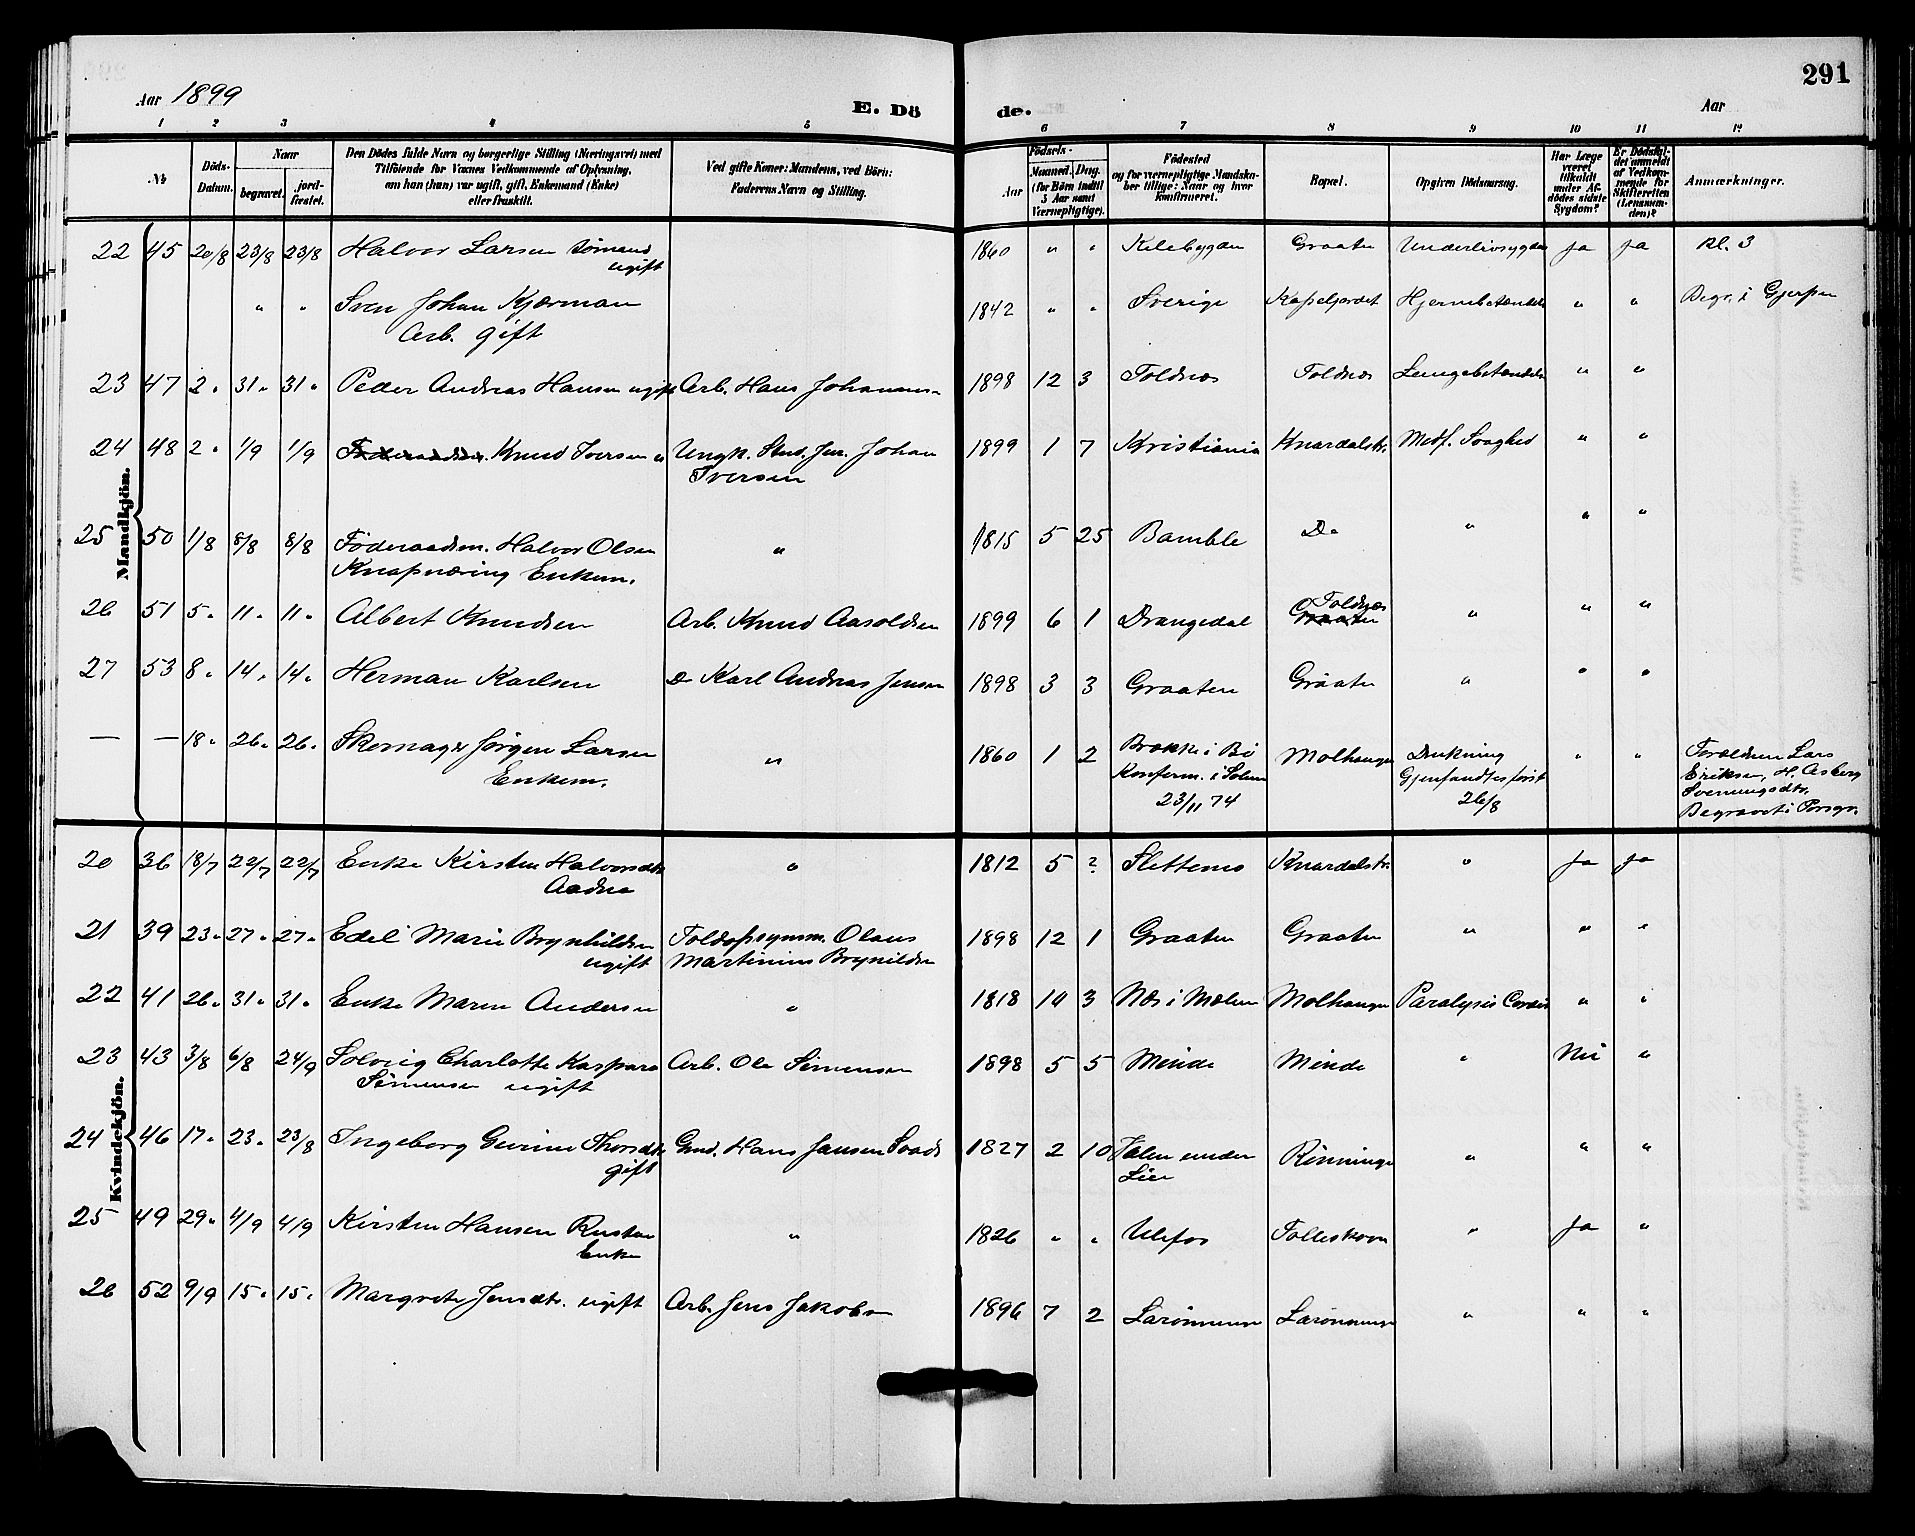 291
Aar 1899
E. Dö
de.
Aar
1 2 3 4 5 6 7 8 9 10 11 12
No
Döds-Datum.
Naar
begravet.
jord-fæstet.
Den Dödes fulde Navn og borgerlige Stilling (Næringsvei) med
Tilföiende for Voxnes Vedkommende af Oplysning,
om han (hun) var ugift, gift, Enkemand (Enke)
eller fraskilt.
Ved gifte Koner: Mandens, ved Börn:
Faderens Navn og Stilling.
Födsels-
Aar
Maaned. Dag.
(for Börn indtil
3 Aar samt
Værnepligtige).
Födested
og for værnepligtige Mandska-
ber tillige: Naar og hvor
konfirmeret.
Bopæl.
Opgiven Dödsaarsag.
Har Læge
været
tilkaldt
under Af-
dödes sidste
Sygdom?
Er Dödsfal-
det anmeldt
af Vedkom-
mende for
Skifteretten
(Lensman-
den)?
Anmærkninger.
Mandkjön.
22 45 20/8 23/8 23/8 Halvor Larsen Sömand 1860 " " Kilebygden Graaten Underlivssygdom ja ja Kl. 3
ugift
" " Sven Johan Kjærman 1842 " " Sverige Hjernebetændelse " " Begr. i Gjerpen
Arb. gift
23 47 2" 31" 31" Peder Andreas Hansen ugift Arb. Hans Johannsen 1898 12 3 Toldnæs Toldnæs Lungebetændelse " "
24 48 2" 1/9 1/9 Knud Iversen " Ungk. Stud. Jur. Johan 1899 1 7 Kristiania Knardalstr. Medf. Svaghed " "
Iversen
25 50 1/8 8/8 8/8 Föderaadsm. Halvor Olsen " 1815 5 25 Bamble Do " " "
Knapnæring Enkem.
26 51 5" 11" 11" Albert Knudsen Arb. Knud Aasoldsen 1899 6 1 Drangedal Toldnæs " " "
27 53 8" 14" 14" Herman Karlsen Do Karl Andreas Jensen 1898 3 3 Graaten Graaten " " "
— — 18" 26" 26" Skomager Jörgen Larsen " 1860 1 2 Brokke i Bö Molhaugen Drukning " " Forældrene Lars
Enkem. Konferm. i Solum Gjenfandtes först Eriksen, H. Asberg
23/11 74 26/8 Sveinungsdtr.
Begravet i Porsgr.
Kvindekjön.
20 36 18/7 22/7 22/7 Enke Kirsten Halvorsdtr " 1812 5 ? Slettemo Knardalstr. " ja ja
Aadna
21 39 23" 27" 27" Edel Marie Brynhildsen Toldopsynsm. Olaus 1898 12 1 Graaten Graaten " " "
ugift Martinius Brynildsen
22 41 26" 31" 31" Enke Maren Andersen " 1818 10 3 Næs i Mælum Molhaugen Paralysis Cordis " "
23 43 3/8 6/8 24/9 Solveig Charlotte Kaspara Arb. Ole Simensen 1898 5 5 Minde Minde " Nei "
Simensen ugift
24 46 17" 23" 23/8 Ingeborg Gurine Thorsdtr Gmd. Hans Jansen 1827 2 10 under Rönningen " " "
gift Lier
25 49 29" 4/9 4/9 Kirsten Hansen Rusten " 1826 " " Ulefos Follestkoven " ja "
Enke
26 52 9/9 15" 15" Margrete Jensdtr. ugift Arb. Jens Jakobsen 1896 7 2 Larönningen Larönningen " " "